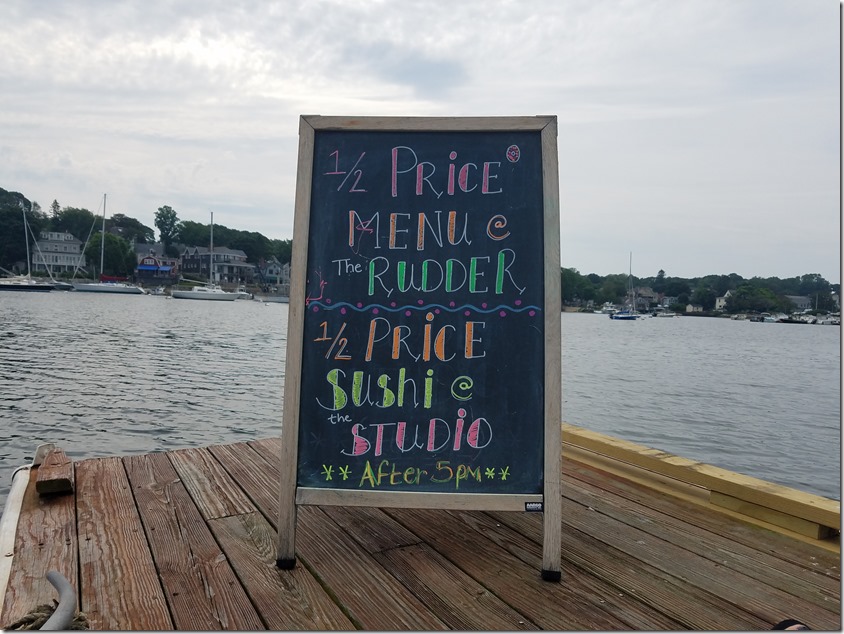 1/2 PRICE
MENU @
The RUDDER
1/2 PRICE
SUSHI @
the STUDIO
** After 5pm **